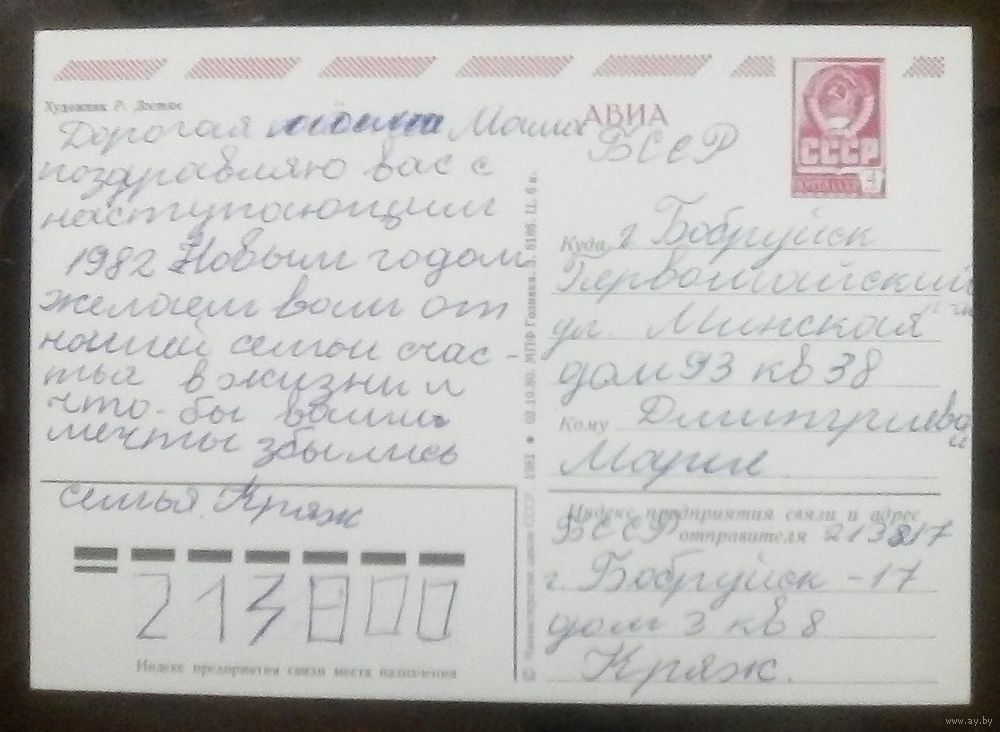 Художник Р.
Дорогая Мама
поздравляю вас с
наступающим
1982 Новым годом
желаем вам от
нашей семьи счас-
тья в жизни и
что-бы ваши
мечты збылись
семья Кряж
213800
Индекс предприятия связи места назначения
© Министерство связи СССР. 1981 ★ 02.10.80. МПФ Гознака. З. 8186. Ц. 6 к.
АВИА
СССР
ПОЧТА
4
БССР
Куда г. Бобруйск
Первомайский
ул. Минская
дом 93 кв 38
Кому Дмитриева
Марии
Индекс предприятия связи и адрес
отправителя 213817
БССР
г. Бобруйск - 17
дом 3 кв 8
Кряж.
www.ay.by